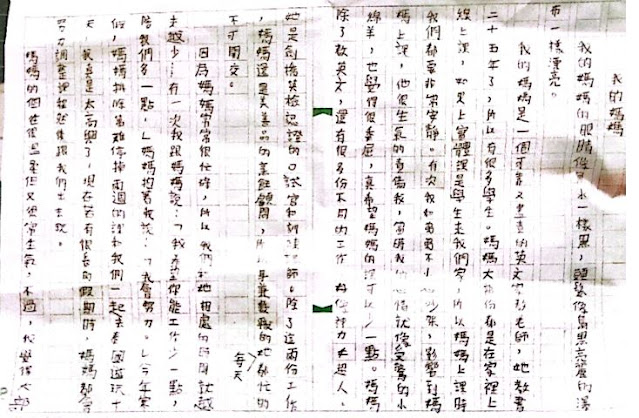 我的媽媽
我的媽媽的眼睛像墨水一樣黑，頭髮像烏黑亮麗的瀑
布一樣漂亮。
我的媽媽是一個可愛又盡責的英文家教老師，她教書
二十五年了，所以有很多學生。媽媽大部份都是在家裡上
線上課，如果上實體課是學生來我們家，所以媽媽上課時
我們都要非常安靜。有次我和哥哥不小心吵架，影響到媽
媽上課，他很生氣的責備我，當時我的心情就像受驚的小
綿羊，也覺得很委屈，真希望媽媽的課可以少一點。媽媽
除了教英文，還有很多份不同的工作
她是劍橋英檢認證的口試官和訓練師。除了這兩份工作
，媽媽還是美善品的烹飪顧問，所以身兼數職的她都忙的
每天
不可開交。
因為媽媽常常很忙碌，所以我們和她相處的時間就越
來越少…有一次我跟媽媽說：「我希望你能工作少一點，
陪我們多一點」媽媽抱著我說：「我會努力。」今年寒
假，媽媽排除萬難停掉兩週的課和我們一起去泰國遊玩十
天，我真是太高興了，現在若有很長的假期時，媽媽都會
努力調整課程然後跟我們出去玩。
媽媽的個性很溫柔但又很常生氣，不過，我覺得大部